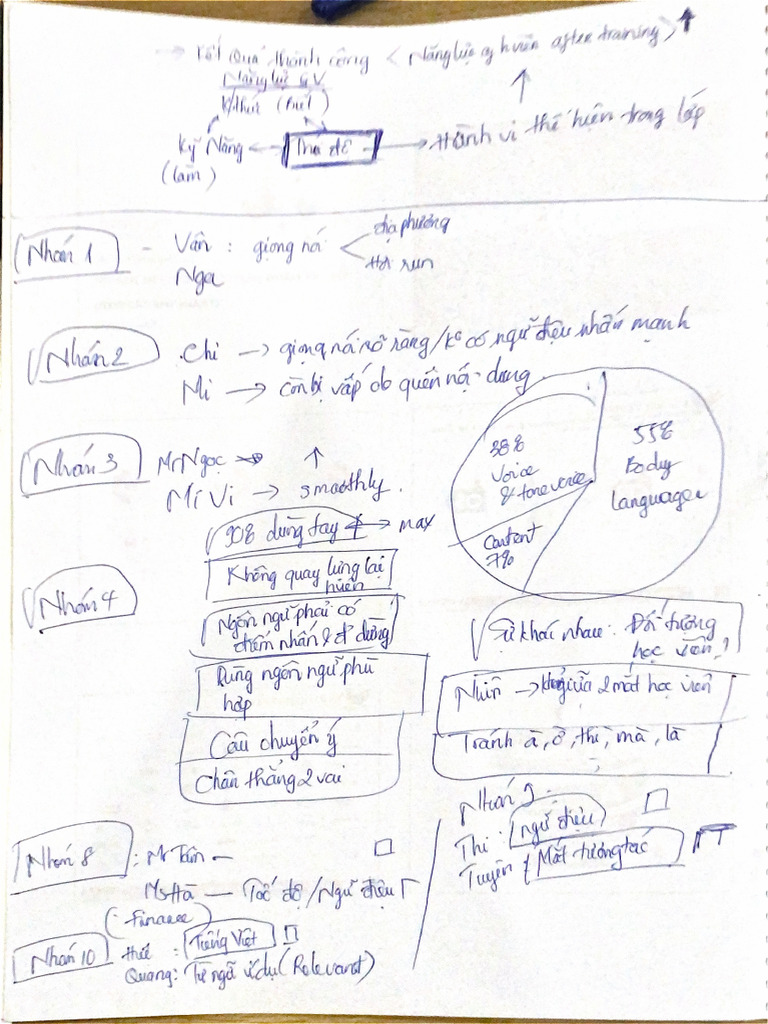 → Kết quả thành công < Năng lực of h.viên after training > ↑
Năng lực G.V.
K/thức (biết)
Kỹ Năng ← Thái độ → Hành vi thể hiện trong lớp
(làm)
Nhóm 1 - Vân : giọng nói < địa phương
Hơi run
Nga
Nhóm 2 . Chi → giọng nói rõ ràng/ko có ngữ điệu nhấn mạnh
Mi → còn bị vấp do quên nội dung
Nhóm 3 Mr Ngọc → ↑
Mi Vi → smoothly.
38%
Voice
& tone voice
55%
Body
language
Content
7%
90% dùng tay → max
Không quay lưng lại
Nhóm 4
Ngôn ngữ phải có
điểm nhấn & dừng
Dùng ngôn ngữ phù
hợp
Câu chuyển ý
Chân thẳng 2 vai
Sự khác nhau: Đối tượng
học viên?
Nhìn → giữa 2 mắt học viên
Tránh à, ờ, thì, mà, là
Nhóm 8 : Mr Tân -
Ms Hà — Tốc độ / Ngữ điệu
(Finance)
Nhóm 10
: Tiếng Việt
Quang: Từ ngữ ví dụ (Relevant)
Nhóm 9.
Thi : ngữ điệu
Tuyên : Mắt tương tác